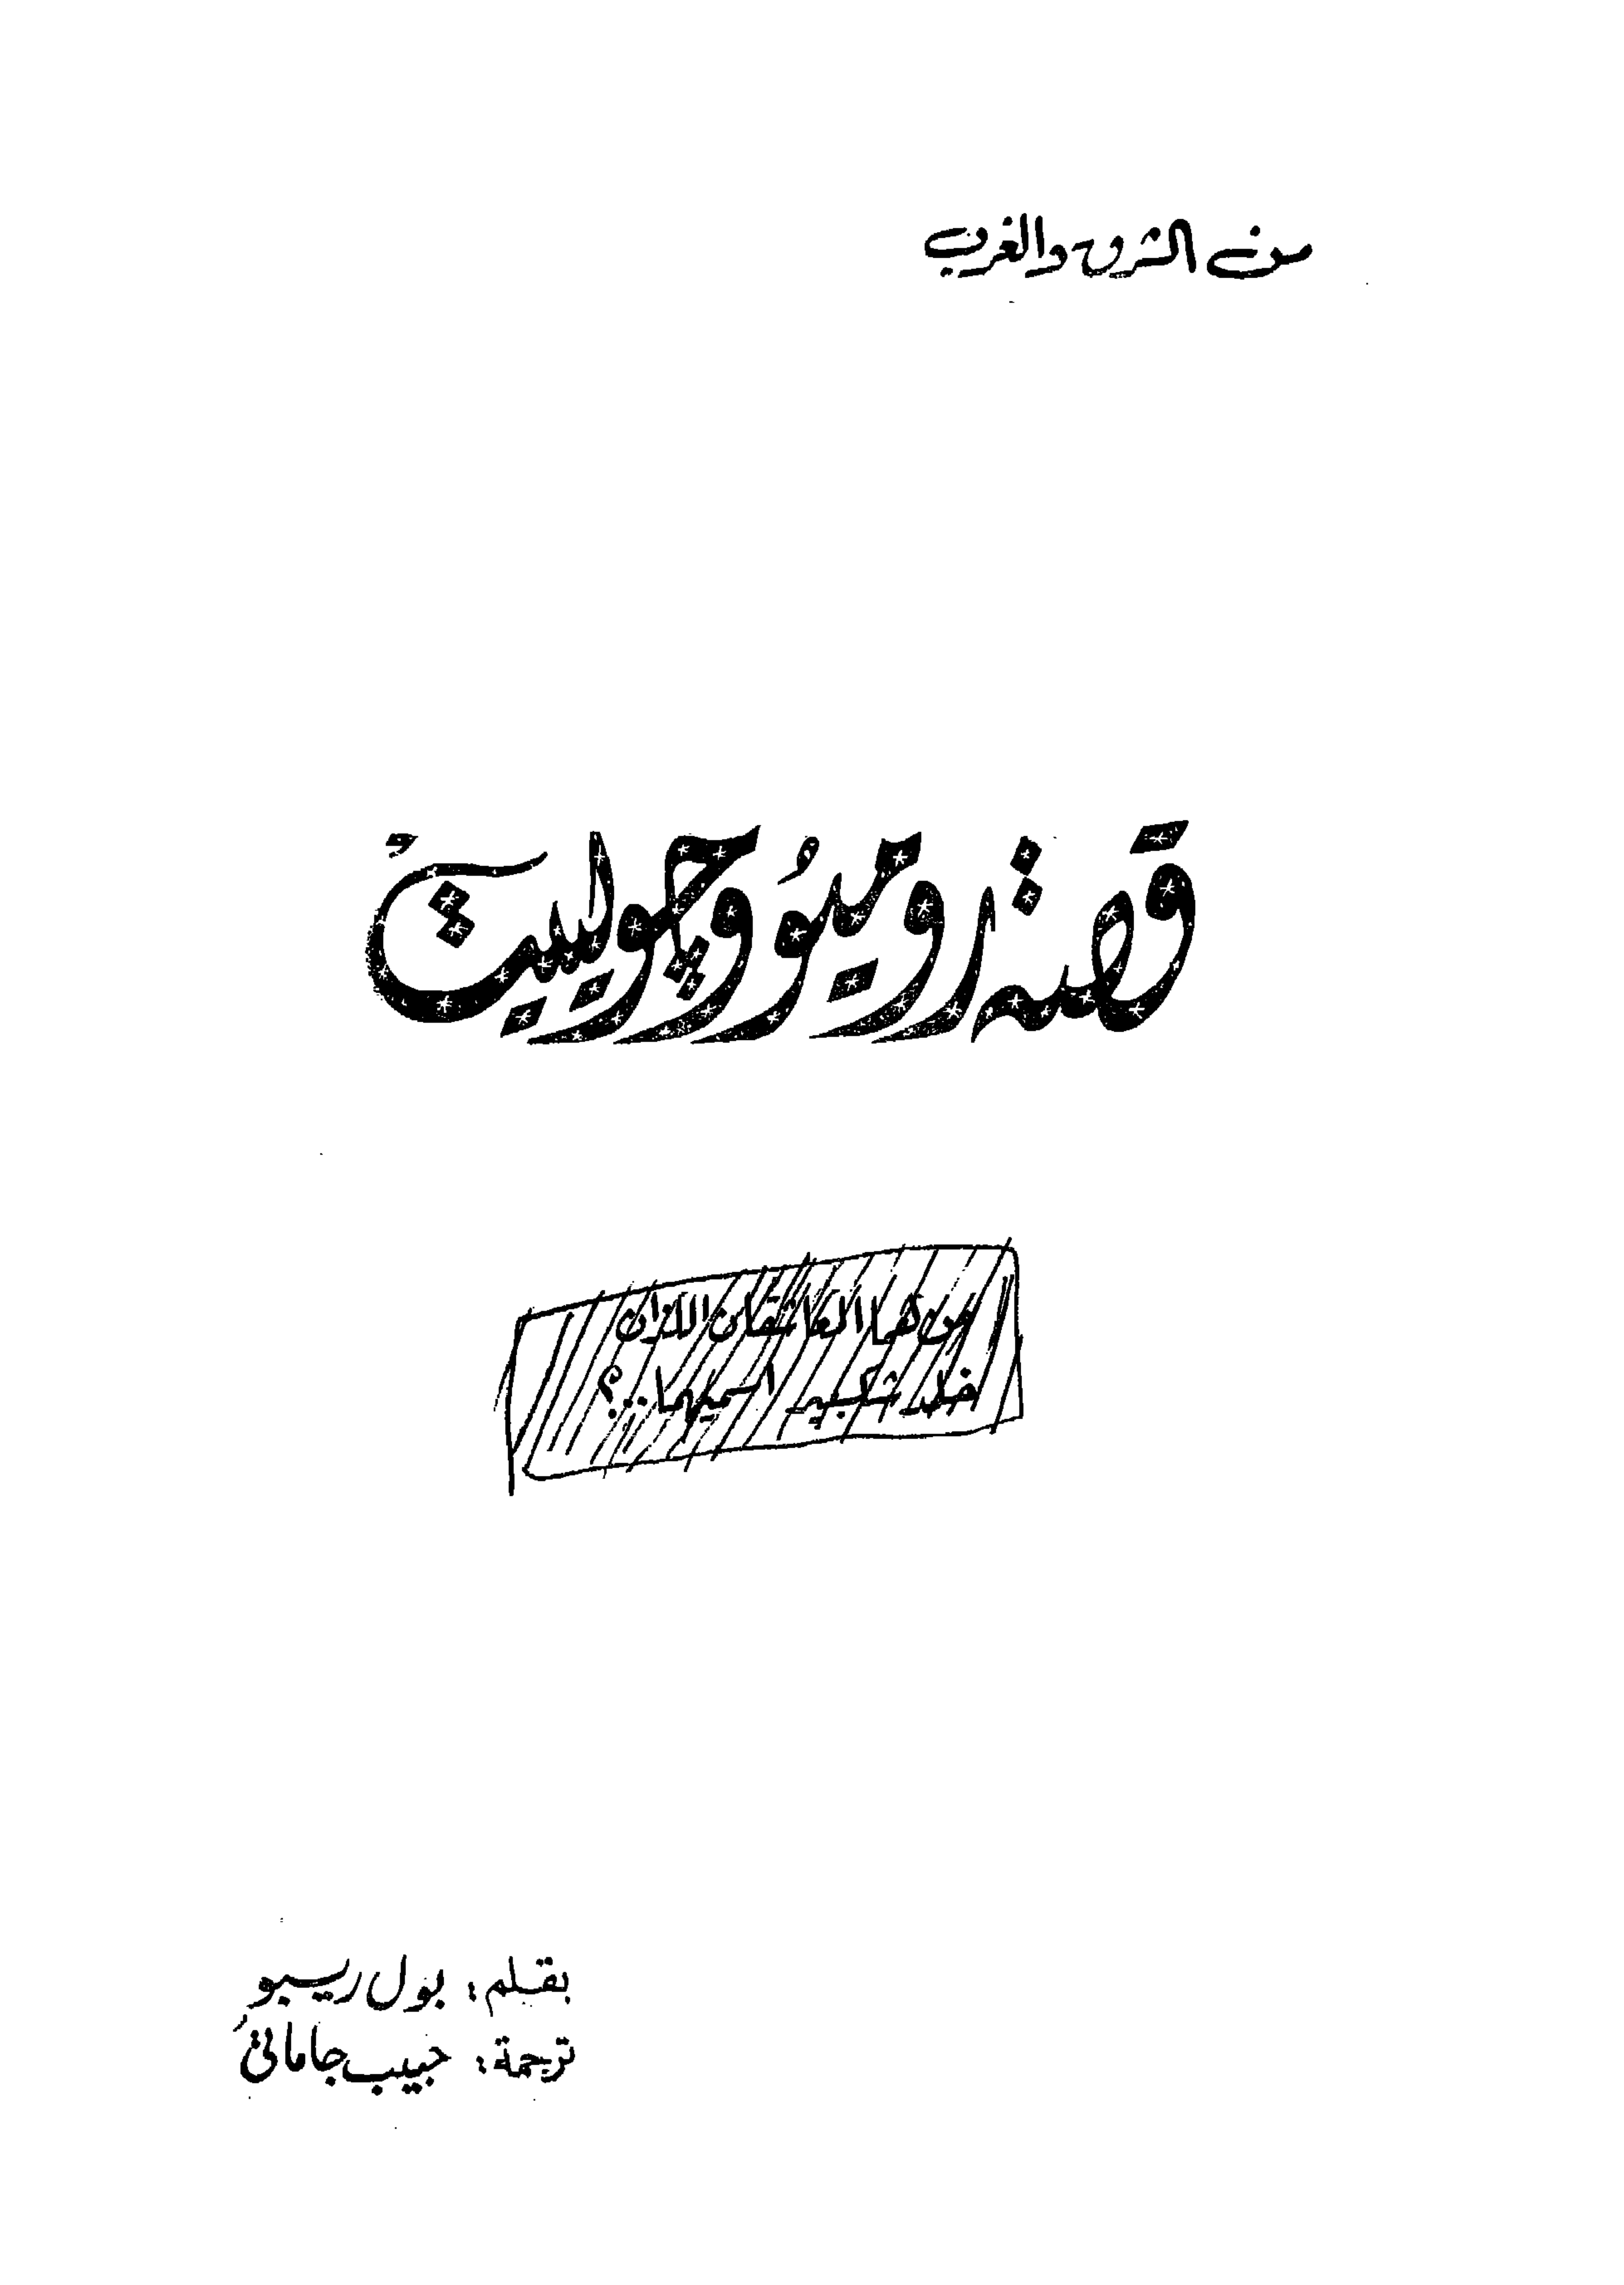 من الشرق والغرب
قصة روميو وچولييت
من هما العاشقان اللذان
خلد شكسبير اسميهما..؟
بقلم: بول ريبو
ترجمة: حبيب جاماتي